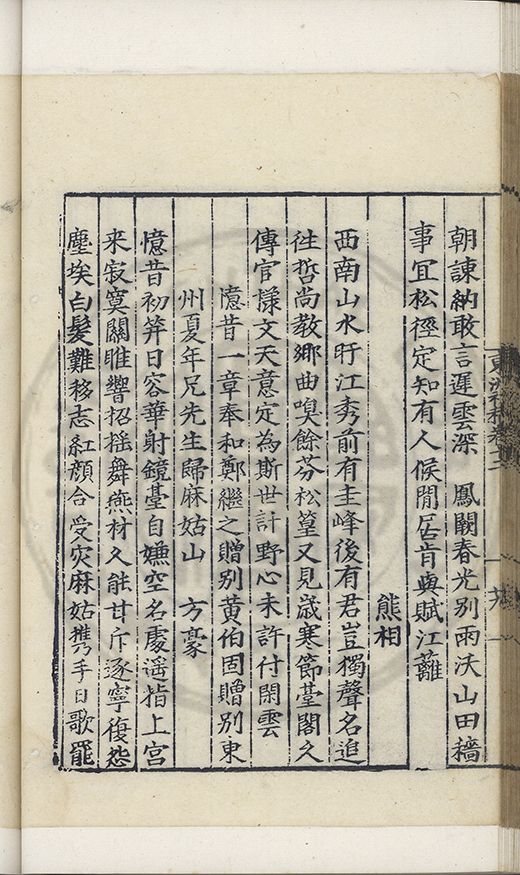 朝諫納敢言遲雲深　鳳闕春光别雨沃山田穡
事冝松徑定知有人候閒居肯與賦江蘺
熊相
西南山水盱江秀前有圭峰後有君豈獨聲名追
徃哲尚教鄉曲嗅餘芬松篁又見歳寒節臺閣久
傳官㨾文天意定為斯世計野心未許付閑雲
憶昔一章奉和鄭繼之贈别黄伯固贈别東
州夏年兄先生歸麻姑山　方豪
憶昔初笄日容華射鏡臺自嫌空名處遥指上宫
来寂寞關雎響招摇舞燕材久能甘斥逐寧復怨
塵埃白髮難移志紅顔合受灾麻姑携手日歌罷